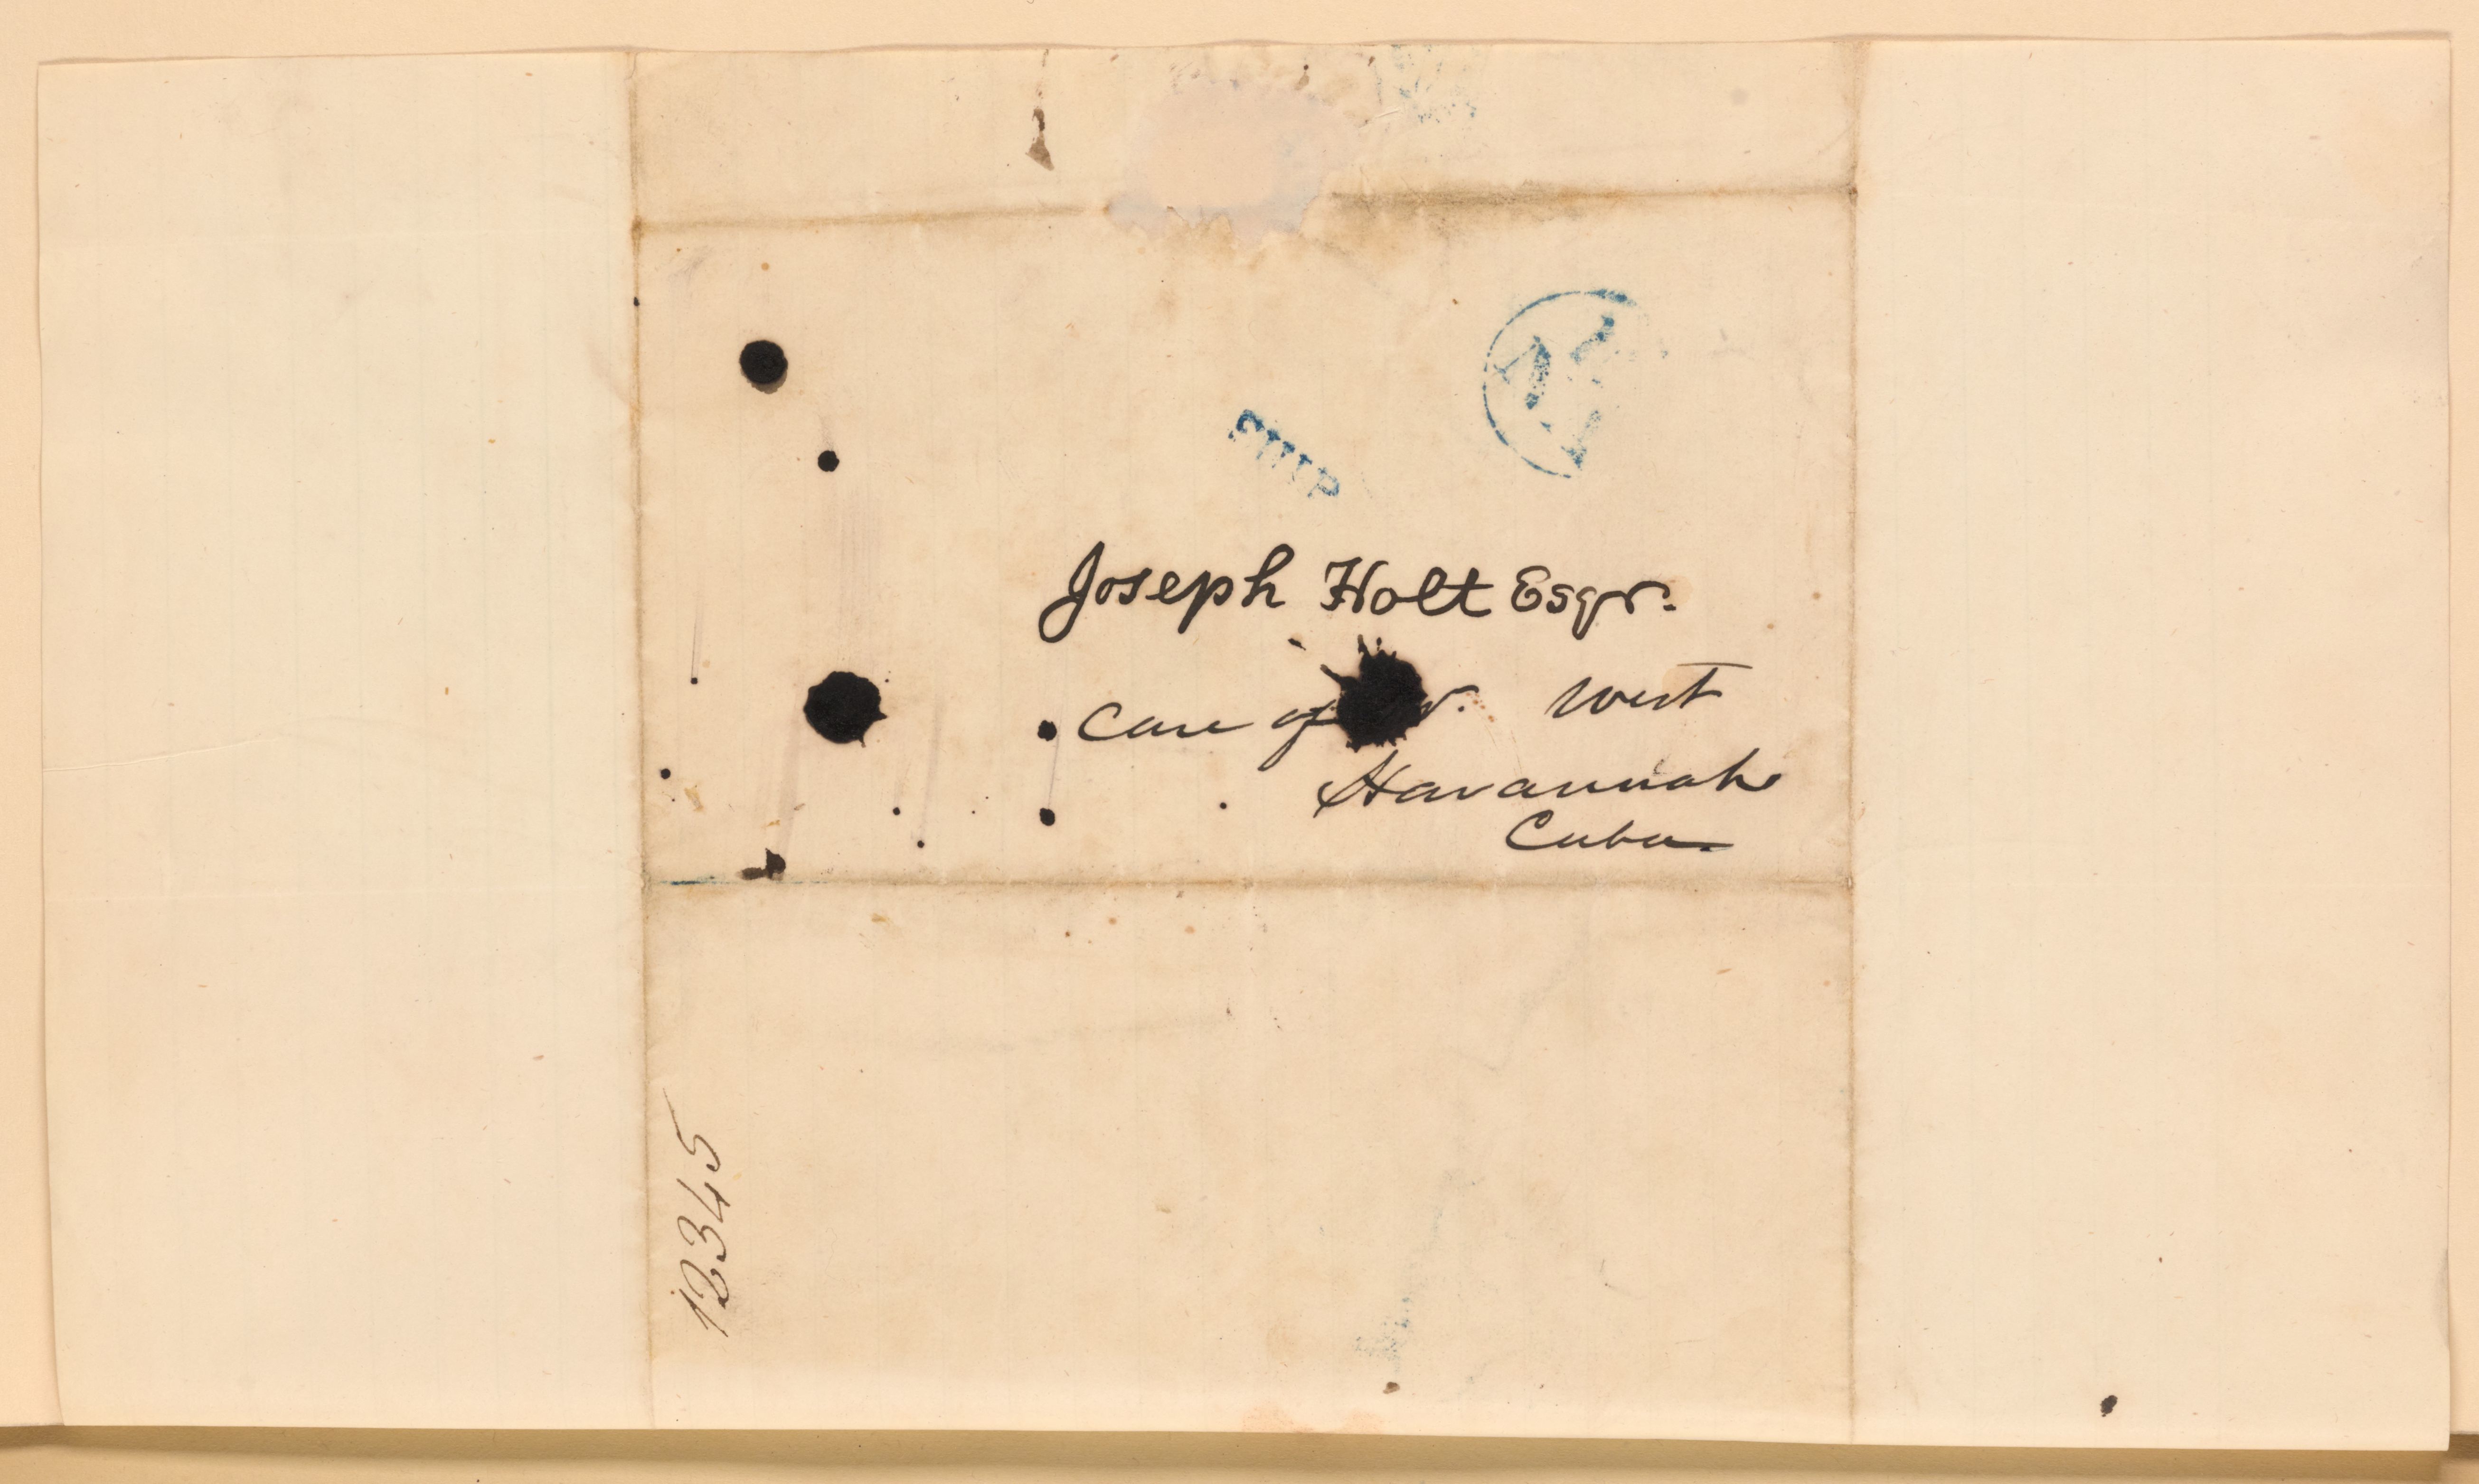 SHIP
Joseph Holt Esqr.
Care of West
Havannah
Cuba
12345